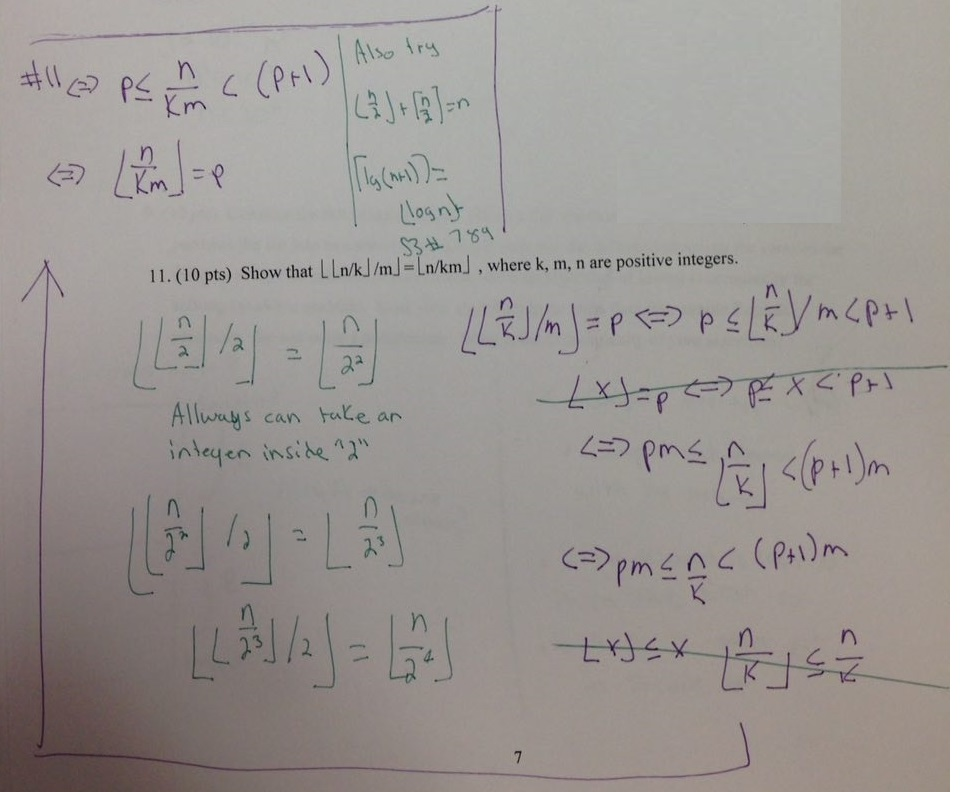 #11 <=> p ≤ n/Km < (p+1)
<=> ⌊n/Km⌋ = p
Also try
⌊n/2⌋ + ⌈n/2⌉ = n
⌈lg(n+1)⌉ =
⌊logn⌋
S3 # 789
11. (10 pts) Show that ⌊⌊n/k⌋/m⌋=⌊n/km⌋ , where k, m, n are positive integers.
⌊⌊n/2⌋/2⌋ = ⌊n/2²⌋
Allways can take an
integer inside "2"
⌊⌊n/2²⌋/2⌋ = ⌊n/2³⌋
⌊⌊n/2³⌋/2⌋ = ⌊n/2⁴⌋
⌊⌊n/K⌋/m⌋ = p <=> p ≤ ⌊n/K⌋/m < p+1
⌊x⌋ = p <=> p ≤ x < p+1
<=> pm ≤ ⌊n/K⌋ < (p+1)m
<=> pm ≤ n/K < (p+1)m
⌊x⌋ ≤ x ⌊n/K⌋ ≤ n/K
7